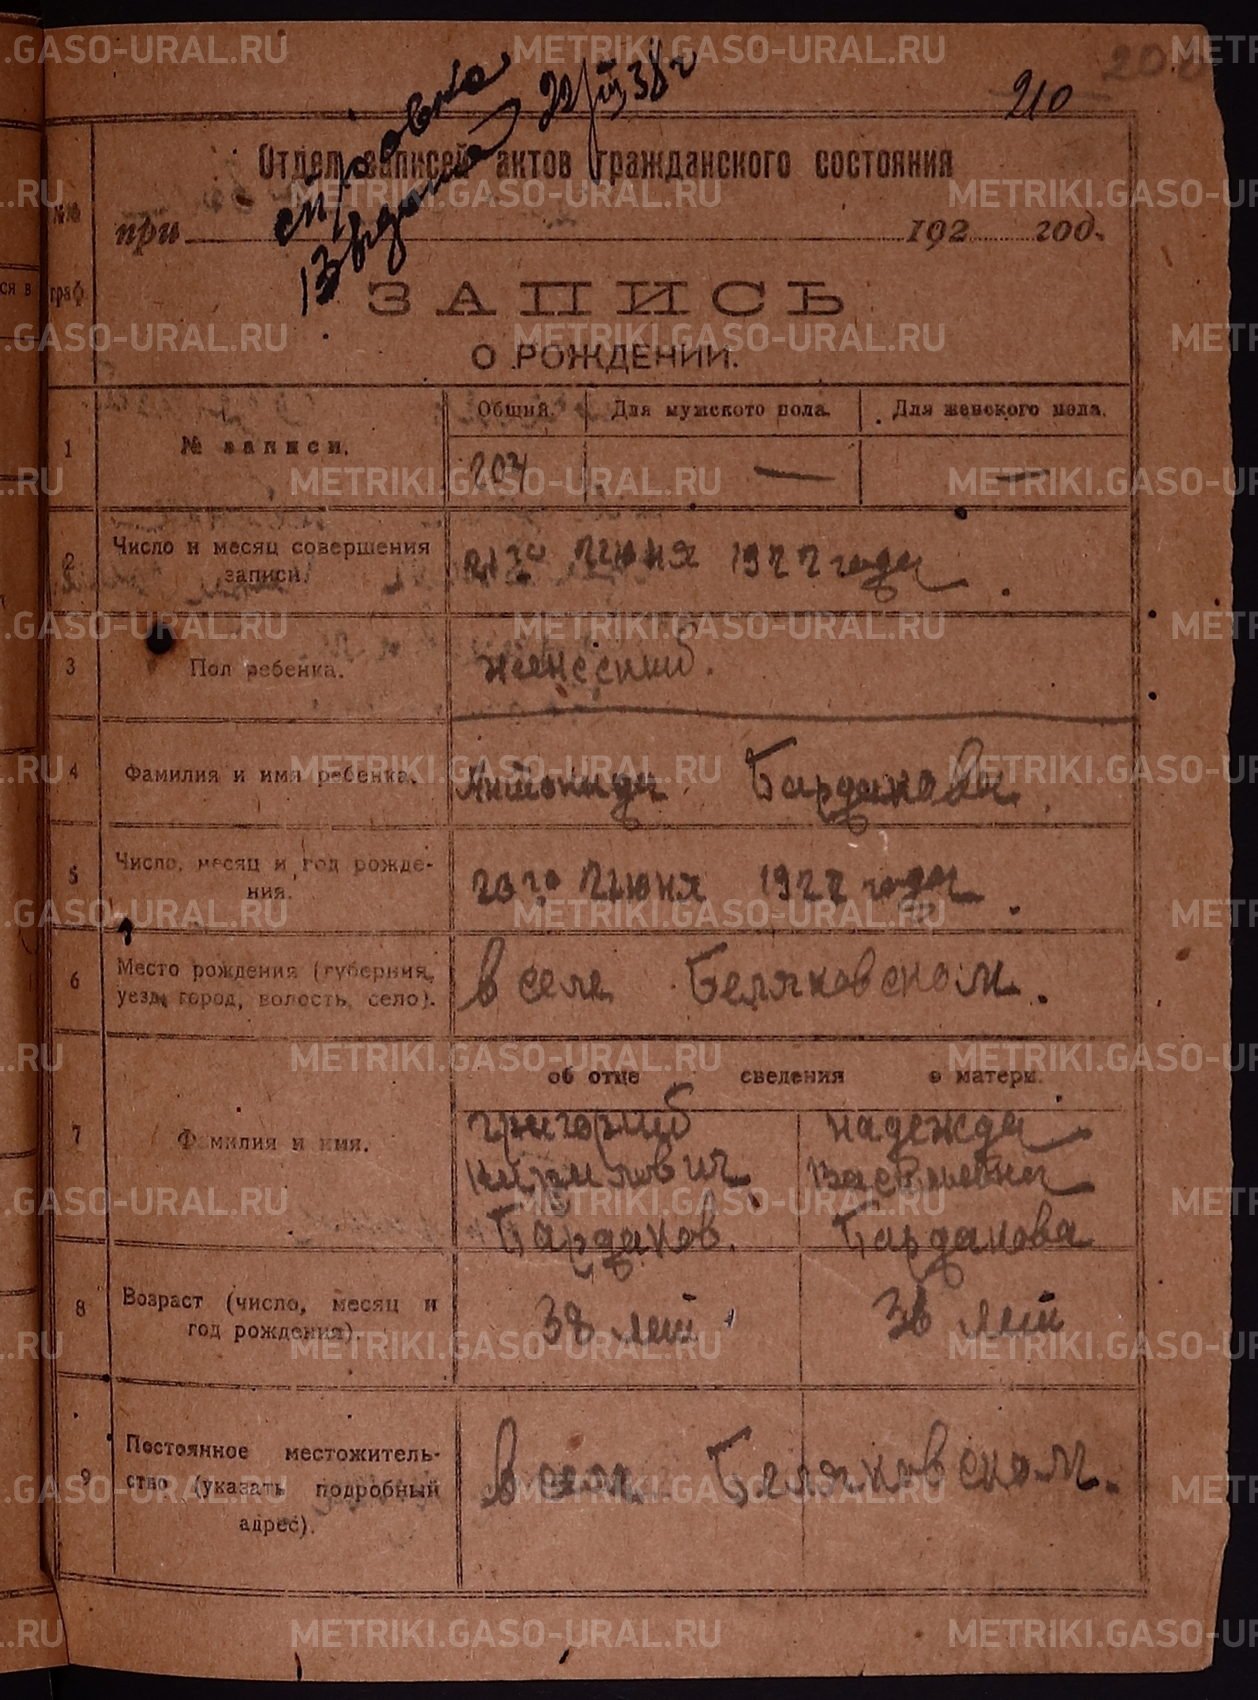 210
справка
выдана 22/III 38 г
Отдел записей актов гражданского состояния
№№
граф
при 192 год.
ЗАПИСЬ
О РОЖДЕНИИ.
Общий. Для мужского пола. Для женского пола.
1 № записи. 204 — —
2 Число и месяц совершения записи. 21го Июня 1922 года
3 Пол ребенка. женский.
4 Фамилия и имя ребенка. Антонида Бардакова.
5 Число, месяц и год рожде-
ния. 20го Июня 1922 года.
6 Место рождения (губерния,
уезд, город, волость, село). в селе Беляковском.
об отце сведения о матери.
7 Фамилия и имя.
Григорий Надежда
Кирилович Васильевна
Бардаков. Бардакова
8 Возраст (число, месяц и
год рождения). 38 лет 36 лет
9 Постоянное местожитель-
ство (указать подробный
адрес). в селе Беляковском.
METRIKI.GASO-URAL.RU